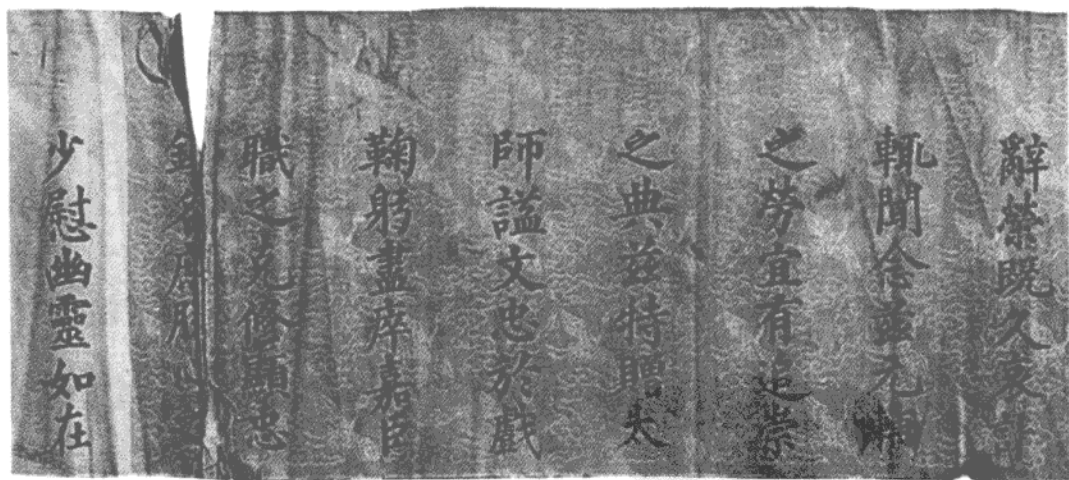 辭榮既久哀訃
輒聞念茲元輔
之勞宜有追崇
之典茲特贈太
師諡文忠於戲
鞠躬盡瘁嘉臣
職之克修顯忠
名
少慰幽靈如在